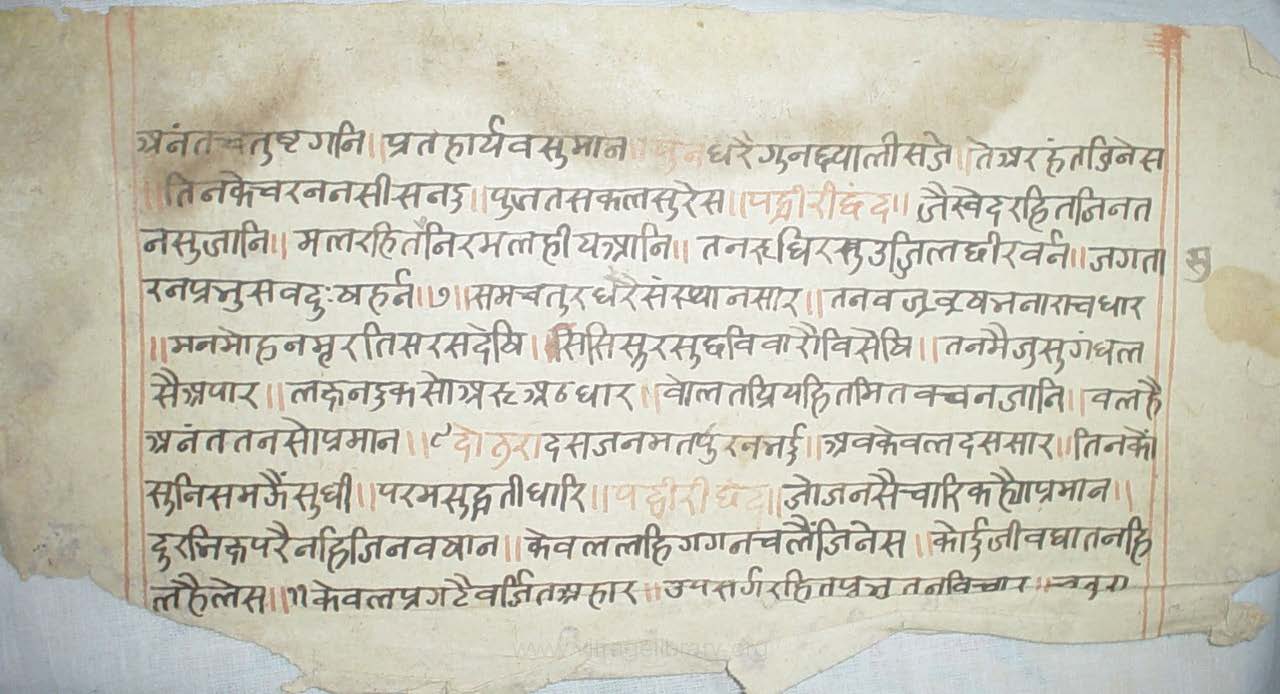 अनंतचतुष्टगनि॥ प्रतहार्यवसुमान॥ पुन धरैगुनछ्यालीसजे॥ तेअरहंतजिनेस
॥तिनकेचरननसीसनइ॥ पुजतसकलसुरेस॥ पद्धरीछंद॥ जैस्वेदरहितजिनत
नसुजानि॥ मलरहितनिरमलहीयआनि॥ तनरूधिरसुउज्जिलछीरवर्न॥ जगता
रनप्रभुसवदुःषहर्न॥७॥ समचतुरधरैसंस्थानसार॥ तनवज्रवृषभनाराचधार
॥मनमोहनमूरतिसरसदेषि॥ ससिसुरसुछविवारौविसेषि॥ तनमैजुसुगंधल
सैअपार॥ लछनइकसोअरूअठधार॥ वोलतप्रियहितमितवचनजानि॥ वलहै
अनंततनसोप्रमान॥९ दोहरा दसजनमतपुरनभई॥ अवकेवलदससार॥ तिनकों
सुनिसमझैंसुधी॥ परमसुद्धतीधारि॥ पद्धरीछंद॥ जोजनसैचारिकह्योप्रमान॥
दुरभिक्षपरैनहिजिनवषान॥ केवललहिगगनचलैंजिनेस॥ कोईजीवघातनहि
लहैलेस॥११ केवलप्रगटैवर्जितअहार॥ उपसर्गरहितप्रभुतनविचार॥ चतुरा
सु
www.vitragelibrary.org